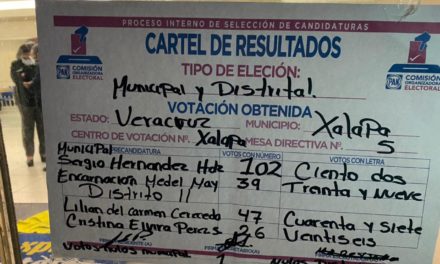 PROCESO INTERNO DE SELECCIÓN DE CANDIDATURAS
CARTEL DE RESULTADOS
COMISIÓN ORGANIZADORA ELECTORAL
PAN
COMISIÓN ORGANIZADORA ELECTORAL
PAN
TIPO DE ELECIÓN:
Municipal y Distrital
VOTACIÓN OBTENIDA
ESTADO: Veracruz MUNICIPIO: Xalapa
CENTRO DE VOTACIÓN Nº. Xalapa MESA DIRECTIVA Nº. 5
Municipal PRECANDIDATURA VOTOS CON NÚMERO VOTOS CON LETRA
Sergio Hernandez Hdz 102 Ciento dos
Encarnación Medel May 39 Treinta y Nueve
Distrito 11
Lilian del Carmen 47 Cuarenta y Siete
Cristina Elvira Perez 26 Ventiseis